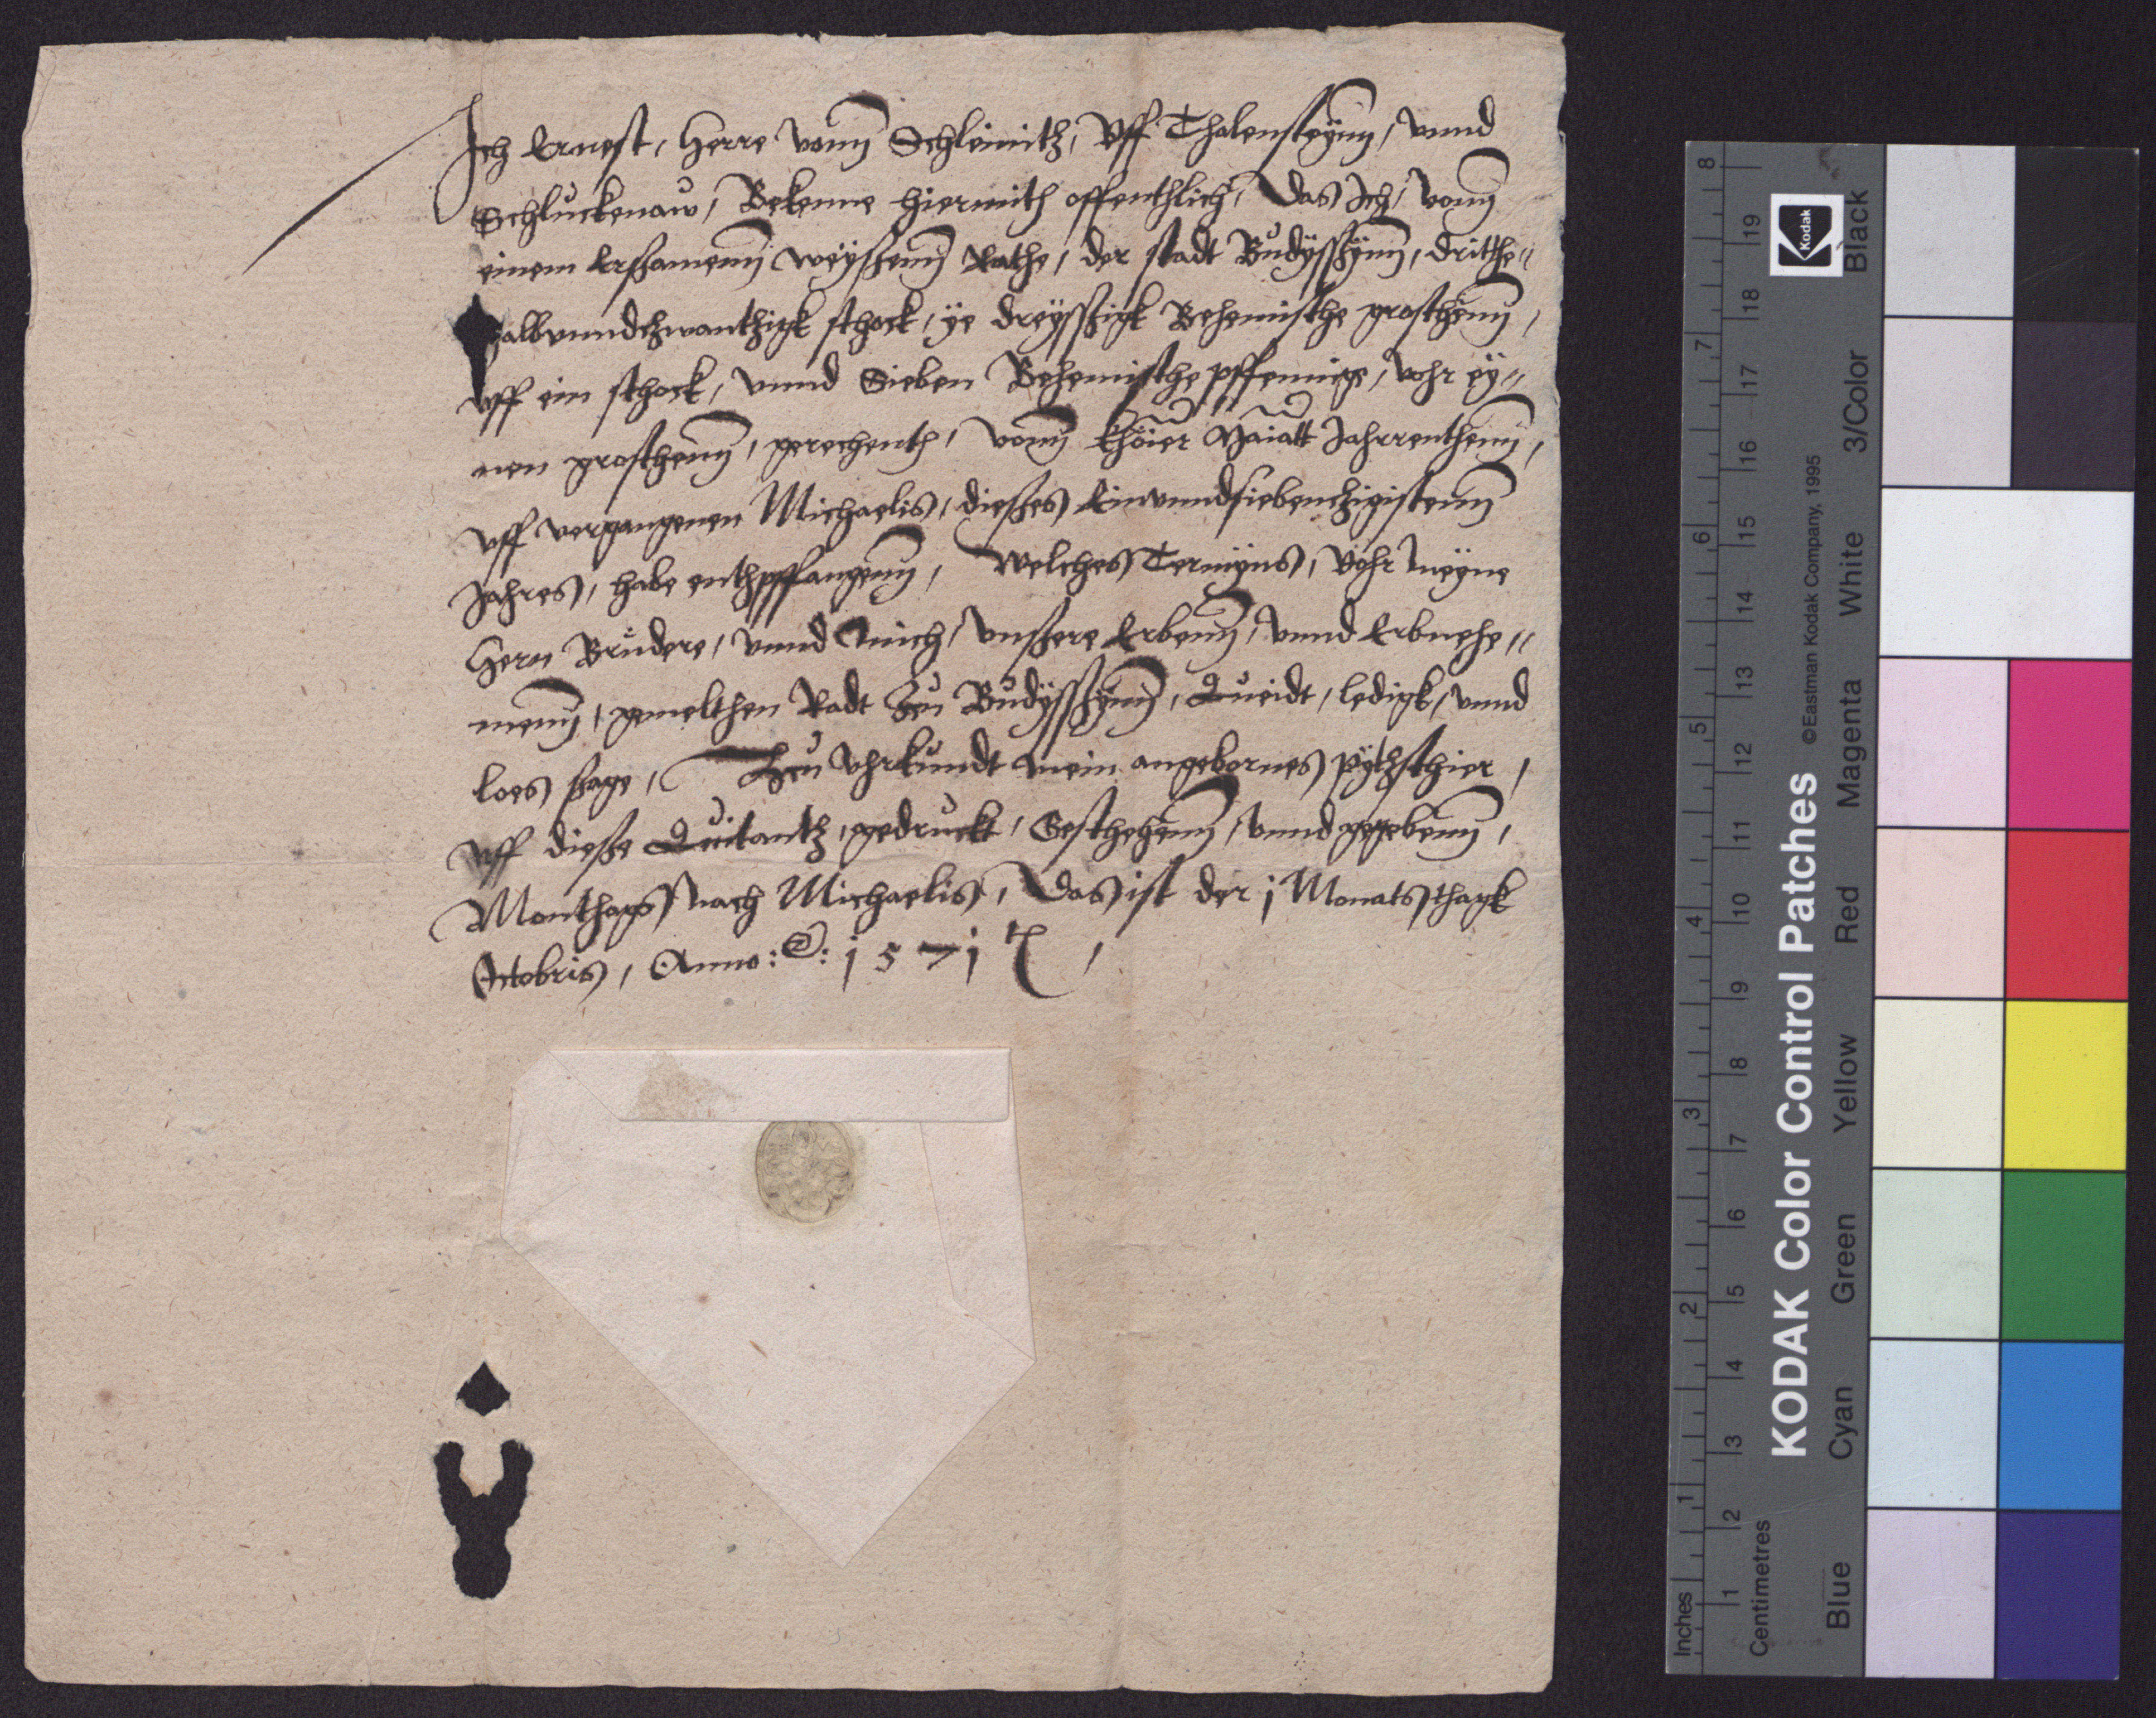 Ich Ernest, Herre vonn Schleinitz, Vff Tholensteÿnn, vnnd
Schluckenaw, Bekenne hiermith offenthlich, Das Ich, vonn
einem Ersamenn weÿsenn Rathe, der stadt Budÿssÿnn, dritthe„
halbvnndzwanthzigk schock, ÿe dreÿssigk Behemische groschenn,
vff ein schock, vnnd Sieben Behemische pffennige, vohr eÿ„
nen groschenn, gerechenth, vonn Khöier Maiatt Jahrrenthenn,
vff vergangenen Michaelis, dieses Einvnndsiebenzigistenn
Jahres, habe enthpffangenn, Welches Termÿns, vohr meÿne
Hern Brüdere, vnnd mich, vnsere Erbenn, vnnd Erbnehe„
menn, gemelthen Radt Zcu Budÿssÿnn, Queidt, ledigk, vnnd
loes sage, Zcu vhrkundt mein angebornes pÿtzschier,
vff diese Quitantz, gedruckt, Geschehenn, vnnd gegebenn,
Monthags nach Michaelis, Das ist der j Monatsthagk
Octobris, Anno: D: 1571
8
7
6
5
4
3
2
1
Inches
19
18
17
16
15
14
13
12
11
10
9
8
7
6
5
4
3
2
1
Centimetres
Kodak
KODAK Color Control Patches
©Eastman Kodak Company, 1995
Blue
Cyan
Green
Yellow
Red
Magenta
White
3/Color
Black